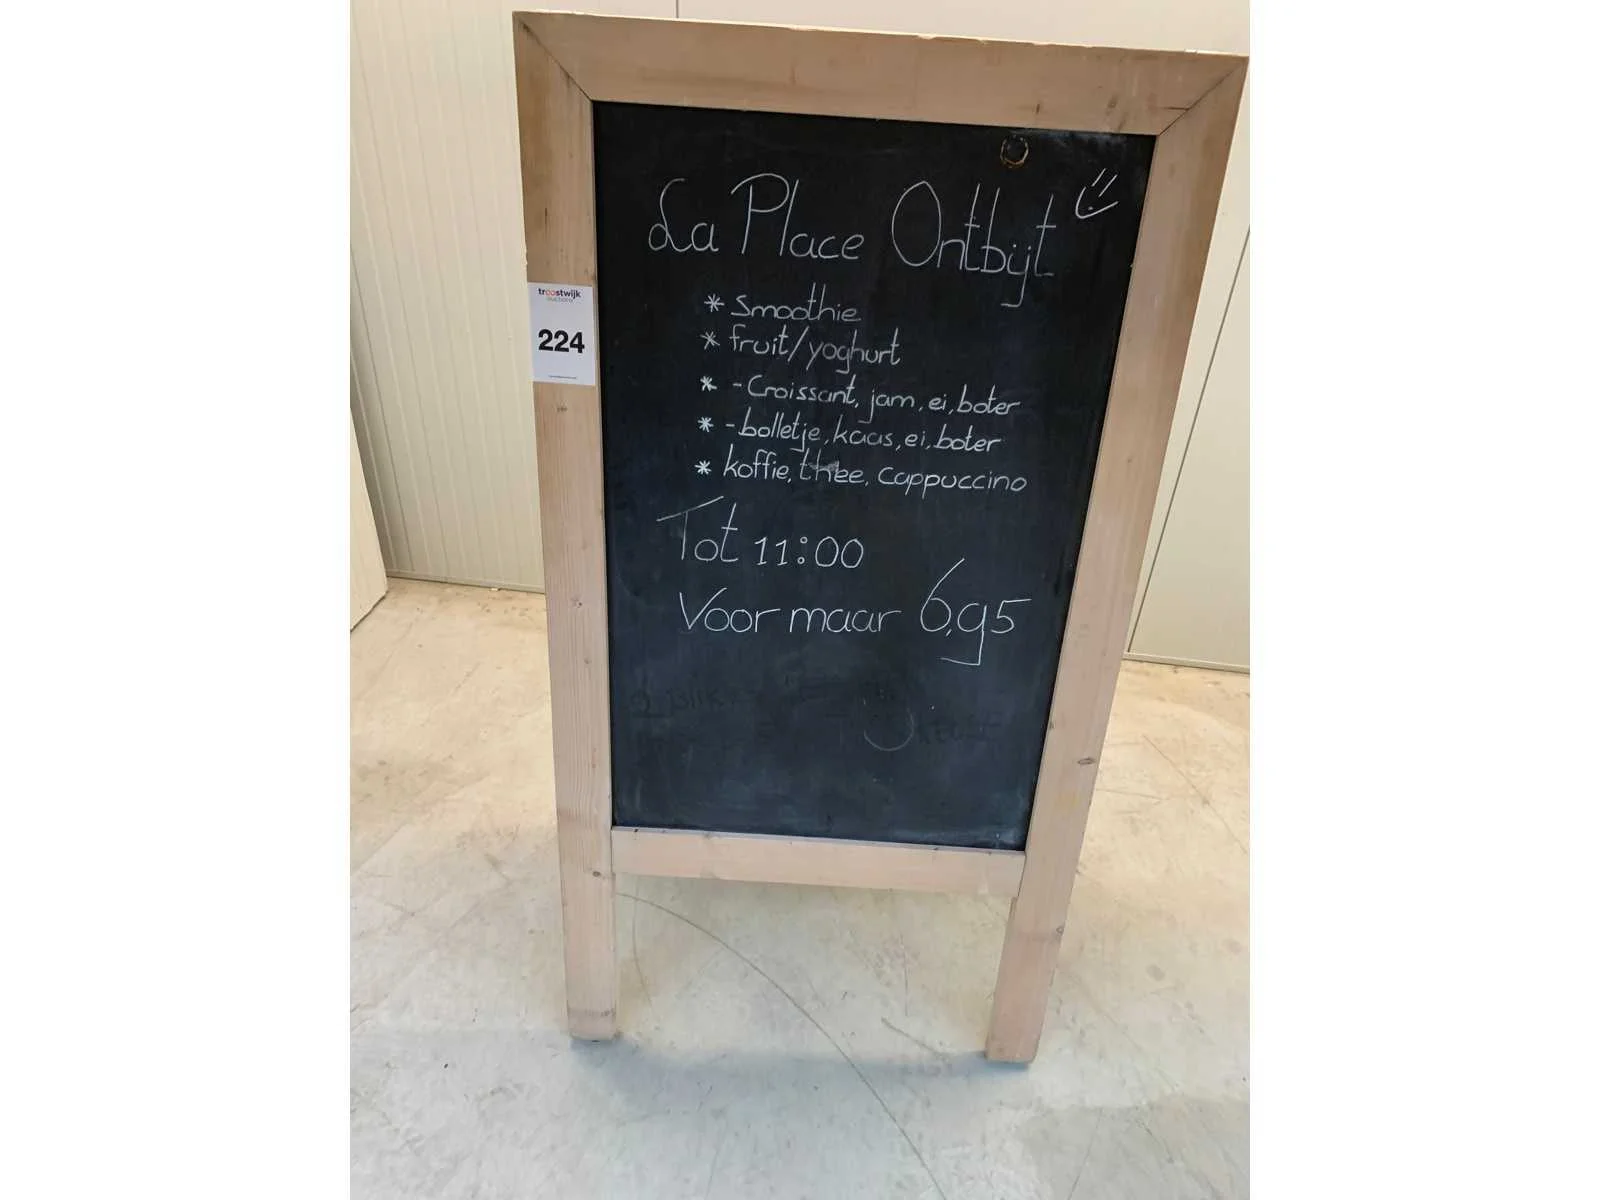 La Place Ontbijt
* Smoothie
* fruit/yoghurt
* -Croissant, jam, ei, boter
* -bolletje, kaas, ei, boter
* koffie, thee, cappuccino
Tot 11:00
Voor maar 6,95
troostwijk
224